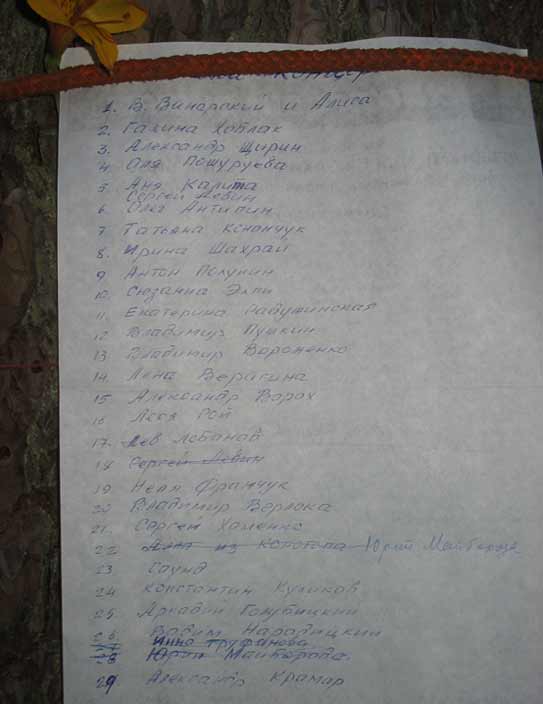 1. В. Винарский и Алиса
2. Галина Хоплак
3. Александр Щирин
4. Оля Пошуруева
5. Аня Калита
Сергей Левин
6. Олег Антипин
7. Татьяна Конончук
8. Ирина Шахрай
9 Антон Полунин
10. Сюзанна Элпи
11. Екатерина Рабушинская
12 Владимир Пушкин
13. Владимир Вороненко
14. Лена Верагина
15 Александр Ворох
16 Леся Рой
17. Лев Лобанов
18 Сергей Левин
19. Неля Франчук
20 Владимир Верлока
21. Сергей Хоменко
22 из Конотопа Юрий Майборода
23 Саунд
24 Константин Куликов
25. Аркадий Голубицкий
26. Вадим Народицкий
Инна Труфанова
28 Юрий Майборода
29 Александр Крамар